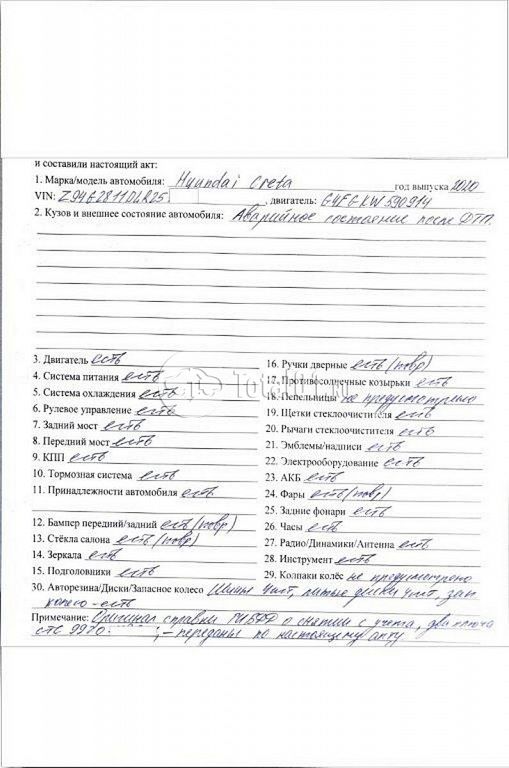 и составили настоящий акт:
1. Марка/модель автомобиля: Hyundai Creta год выпуска 2020
VIN: Z94G2811DLR25 , двигатель: G4FGKW590914
2. Кузов и внешнее состояние автомобиля: Аварийное состояние после ДТП.
3. Двигатель есть
4. Система питания есть
5. Система охлаждения есть
6. Рулевое управление есть
7. Задний мост есть
8. Передний мост есть
9. КПП есть
10. Тормозная система есть
11. Принадлежности автомобиля есть
12. Бампер передний/задний есть (повр)
13. Стёкла салона есть (повр)
14. Зеркала есть
15. Подголовники есть
16. Ручки дверные есть (повр)
17. Противосолнечные козырьки есть
18. Пепельницы не предусмотрено
19. Щетки стеклоочистителя есть
20. Рычаги стеклоочистителя есть
21. Эмблемы/надписи есть
22. Электрооборудование есть
23. АКБ есть
24. Фары есть (повр)
25. Задние фонари есть
26. Часы есть
27. Радио/Динамики/Антенна есть
28. Инструмент есть
29. Колпаки колёс не предусмотрено
30. Авторезина/Диски/Запасное колесо Шины 4шт, литые диски 4шт, зап
колесо - есть
Примечание: Оригинал справки ГИБДД о снятии с учета, два ключа
СТС 9920 ; - переданы по настоящему акту
Total01.ru